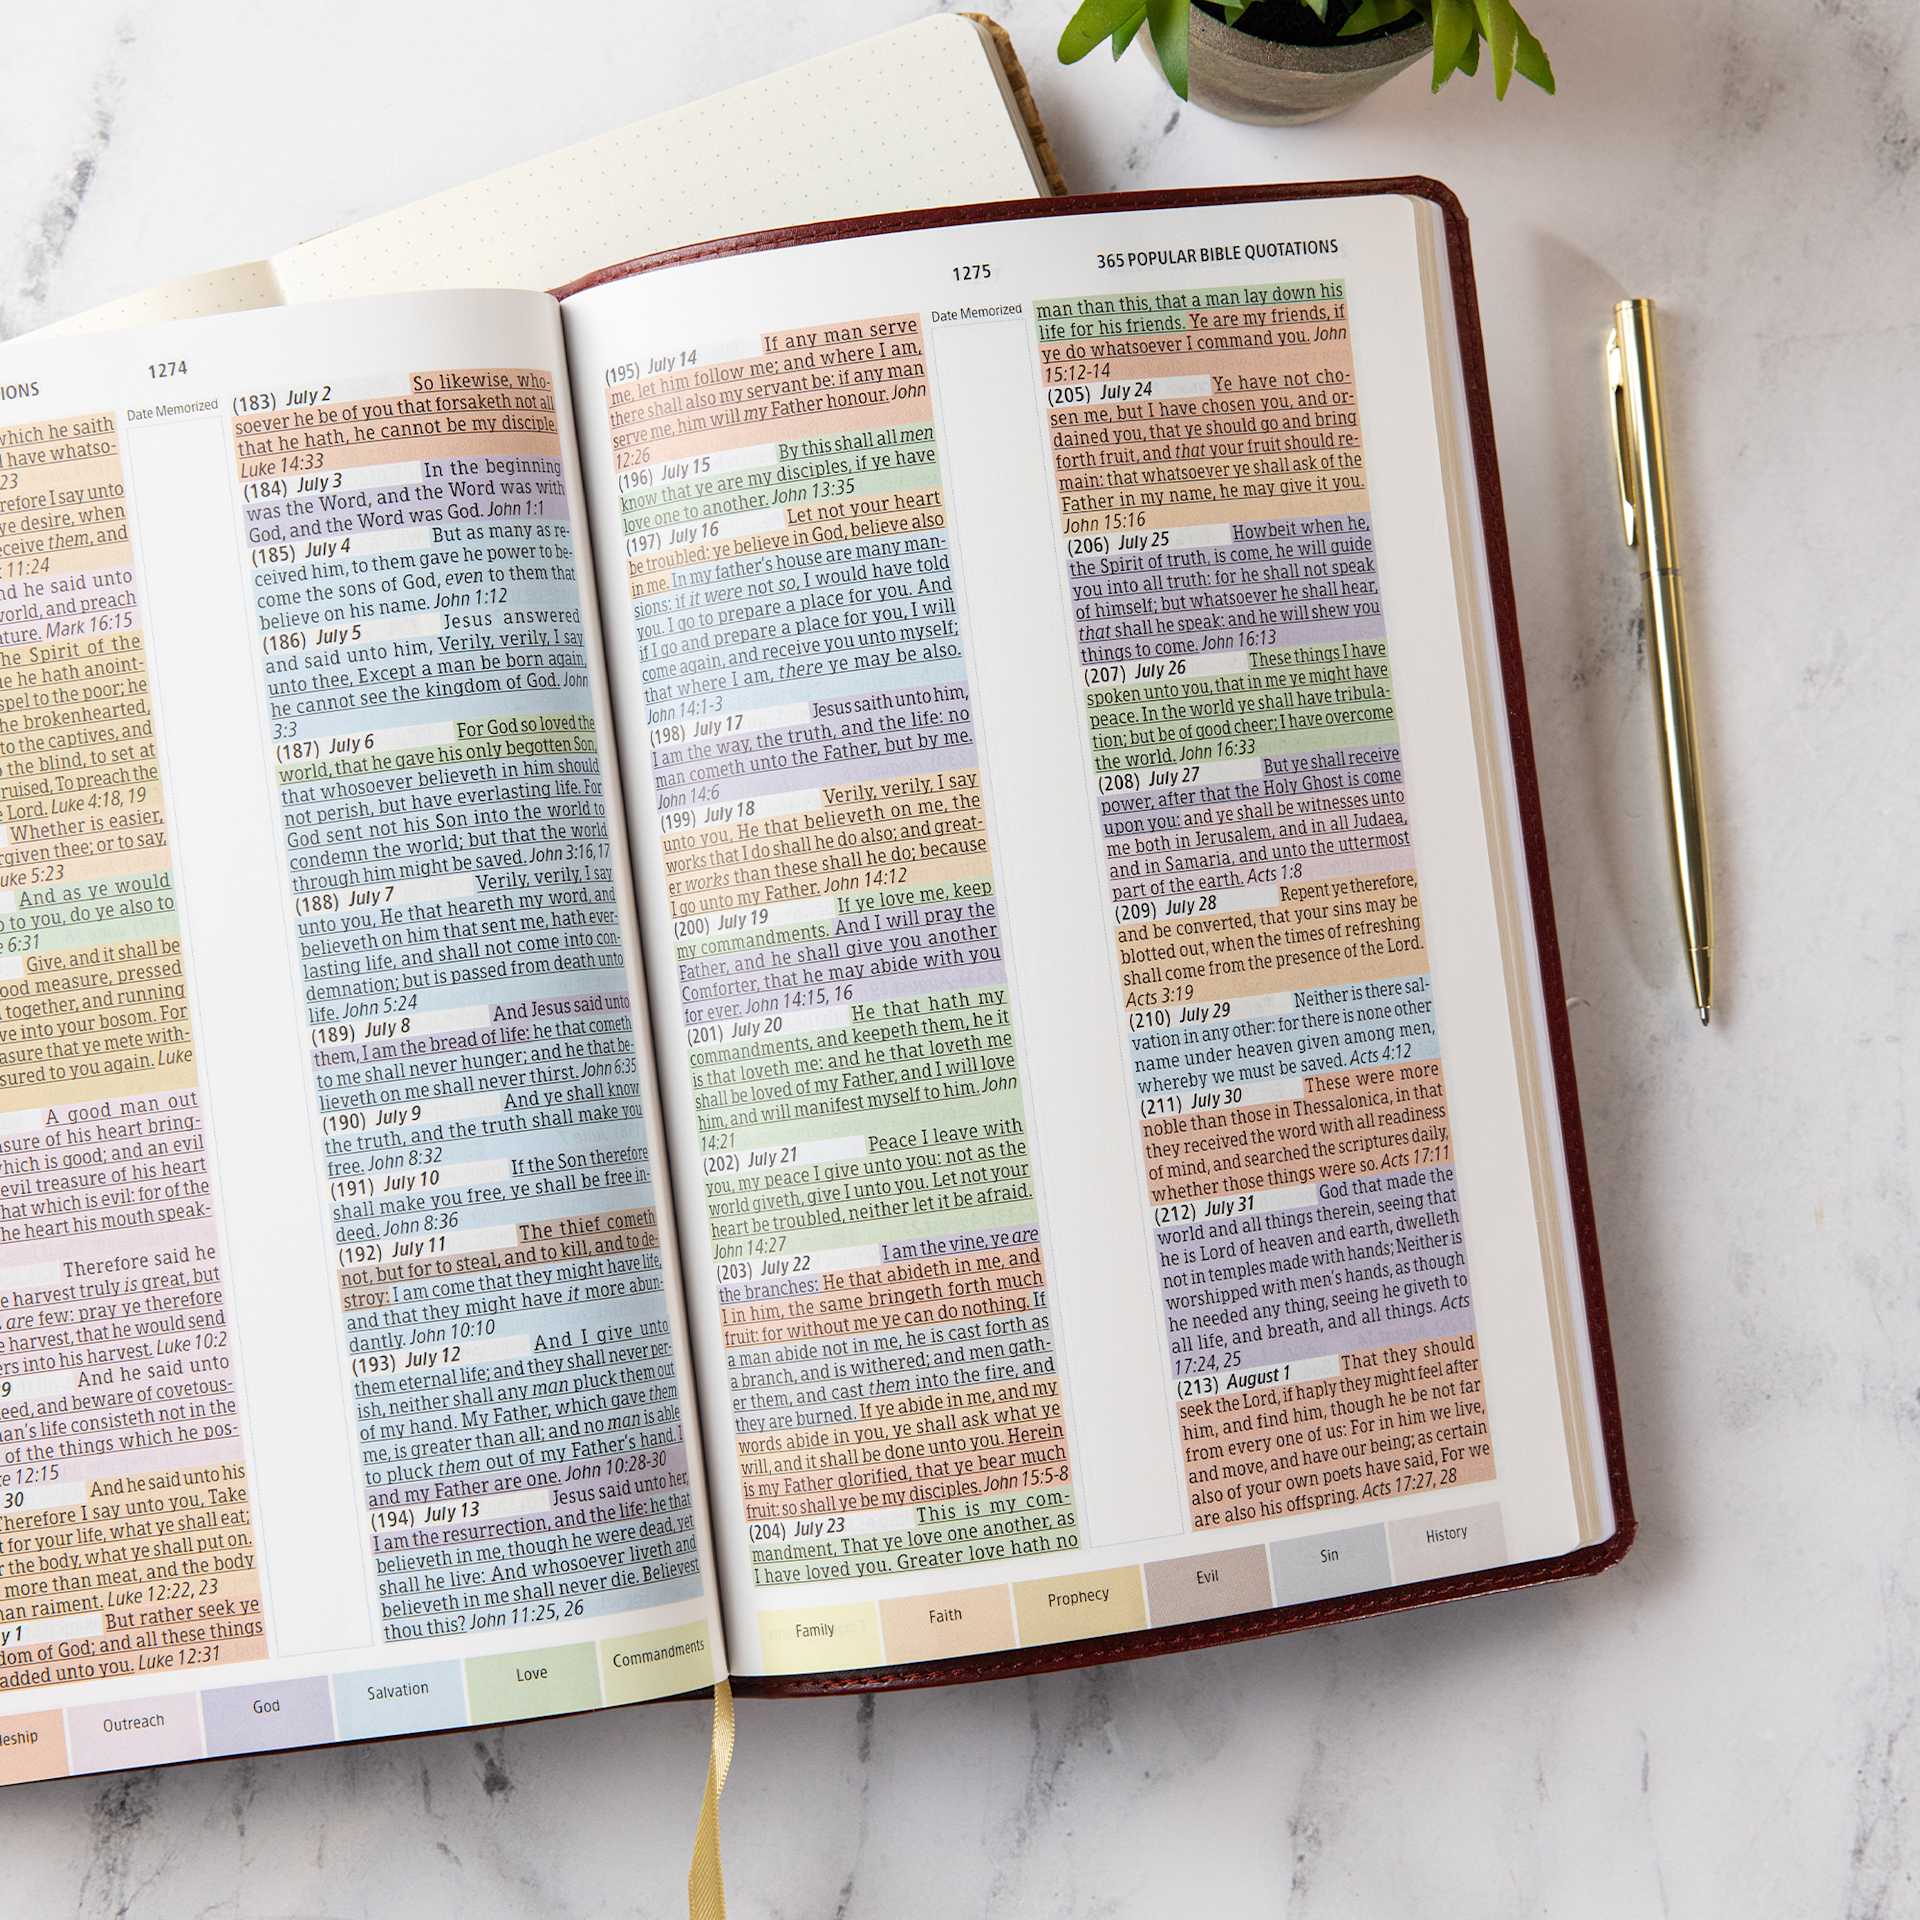 IONS
1274
which he saith
have whatso-
23
refore I say unto
ye desire, when
eceive them, and
11:24
nd he said unto
world, and preach
ature. Mark 16:15
he Spirit of the
e he hath anoint-
spel to the poor; he
he brokenhearted,
to the captives, and
o the blind, to set at
ruised, To preach the
e Lord. Luke 4:18, 19
Whether is easier,
rgiven thee; or to say,
uke 5:23
And as ye would
o to you, do ye also to
e 6:31
Give, and it shall be
ood measure, pressed
together, and running
ve into your bosom. For
asure that ye mete with-
sured to you again. Luke
A good man out
asure of his heart bring-
hich is good; and an evil
evil treasure of his heart
hat which is evil: for of the
he heart his mouth speak-
Therefore said he
e harvest truly is great, but
are few: pray ye therefore
e harvest, that he would send
ers into his harvest. Luke 10:2
9 And he said unto
eed, and beware of covetous-
an's life consisteth not in the
of the things which he pos-
e 12:15
30 And he said unto his
Therefore I say unto you, Take
t for your life, what ye shall eat;
r the body, what ye shall put on.
more than meat, and the body
han raiment. Luke 12:22, 23
y 1 But rather seek ye
dom of God; and all these things
added unto you. Luke 12:31
Date Memorized
(183) July 2 So likewise, who-
soever he be of you that forsaketh not all
that he hath, he cannot be my disciple.
Luke 14:33
(184) July 3 In the beginning
was the Word, and the Word was with
God, and the Word was God. John 1:1
(185) July 4 But as many as re-
ceived him, to them gave he power to be-
come the sons of God, even to them that
believe on his name. John 1:12
(186) July 5 Jesus answered
and said unto him, Verily, verily, I say
unto thee, Except a man be born again,
he cannot see the kingdom of God. John
3:3
(187) July 6 For God so loved the
world, that he gave his only begotten Son,
that whosoever believeth in him should
not perish, but have everlasting life. For
God sent not his Son into the world to
condemn the world; but that the world
through him might be saved. John 3:16, 17
(188) July 7 Verily, verily, I say
unto you, He that heareth my word, and
believeth on him that sent me, hath ever-
lasting life, and shall not come into con-
demnation; but is passed from death unto
life. John 5:24
(189) July 8 And Jesus said unto
them, I am the bread of life: he that cometh
to me shall never hunger; and he that be-
lieveth on me shall never thirst. John 6:35
(190) July 9 And ye shall know
the truth, and the truth shall make you
free. John 8:32
(191) July 10 If the Son therefore
shall make you free, ye shall be free in-
deed. John 8:36
(192) July 11 The thief cometh
not, but for to steal, and to kill, and to de-
stroy: I am come that they might have life,
and that they might have it more abun-
dantly. John 10:10
(193) July 12 And I give unto
them eternal life; and they shall never per-
ish, neither shall any man pluck them out
of my hand. My Father, which gave them
me, is greater than all; and no man is able
to pluck them out of my Father's hand. I
and my Father are one. John 10:28-30
(194) July 13 Jesus said unto her,
I am the resurrection, and the life: he that
believeth in me, though he were dead, yet
shall he live: And whosoever liveth and
believeth in me shall never die. Believest
thou this? John 11:25, 26
leship
Outreach
God
Salvation
Love
Commandments
1275
365 POPULAR BIBLE QUOTATIONS
(195) July 14 If any man serve
me, let him follow me; and where I am,
there shall also my servant be: if any man
serve me, him will my Father honour. John
12:26
(196) July 15 By this shall all men
know that ye are my disciples, if ye have
love one to another. John 13:35
(197) July 16 Let not your heart
be troubled: ye believe in God, believe also
in me. In my father's house are many man-
sions: if it were not so, I would have told
you. I go to prepare a place for you. And
if I go and prepare a place for you, I will
come again, and receive you unto myself;
that where I am, there ye may be also.
John 14:1-3
(198) July 17 Jesus saith unto him,
I am the way, the truth, and the life: no
man cometh unto the Father, but by me.
John 14:6
(199) July 18 Verily, verily, I say
unto you, He that believeth on me, the
works that I do shall he do also; and great-
er works than these shall he do; because
I go unto my Father. John 14:12
(200) July 19 If ye love me, keep
my commandments. And I will pray the
Father, and he shall give you another
Comforter, that he may abide with you
for ever. John 14:15, 16
(201) July 20 He that hath my
commandments, and keepeth them, he it
is that loveth me: and he that loveth me
shall be loved of my Father, and I will love
him, and will manifest myself to him. John
14:21
(202) July 21 Peace I leave with
you, my peace I give unto you: not as the
world giveth, give I unto you. Let not your
heart be troubled, neither let it be afraid.
John 14:27
(203) July 22 I am the vine, ye are
the branches: He that abideth in me, and
I in him, the same bringeth forth much
fruit: for without me ye can do nothing. If
a man abide not in me, he is cast forth as
a branch, and is withered; and men gath-
er them, and cast them into the fire, and
they are burned. If ye abide in me, and my
words abide in you, ye shall ask what ye
will, and it shall be done unto you. Herein
is my Father glorified, that ye bear much
fruit: so shall ye be my disciples. John 15:5-8
(204) July 23 This is my com-
mandment, That ye love one another, as
I have loved you. Greater love hath no
Date Memorized
man than this, that a man lay down his
life for his friends. Ye are my friends, if
ye do whatsoever I command you. John
15:12-14
(205) July 24 Ye have not cho-
sen me, but I have chosen you, and or-
dained you, that ye should go and bring
forth fruit, and that your fruit should re-
main: that whatsoever ye shall ask of the
Father in my name, he may give it you.
John 15:16
(206) July 25 Howbeit when he,
the Spirit of truth, is come, he will guide
you into all truth: for he shall not speak
of himself; but whatsoever he shall hear,
that shall he speak: and he will shew you
things to come. John 16:13
(207) July 26 These things I have
spoken unto you, that in me ye might have
peace. In the world ye shall have tribula-
tion; but be of good cheer; I have overcome
the world. John 16:33
(208) July 27 But ye shall receive
power, after that the Holy Ghost is come
upon you: and ye shall be witnesses unto
me both in Jerusalem, and in all Judaea,
and in Samaria, and unto the uttermost
part of the earth. Acts 1:8
(209) July 28 Repent ye therefore,
and be converted, that your sins may be
blotted out, when the times of refreshing
shall come from the presence of the Lord.
Acts 3:19
(210) July 29 Neither is there sal-
vation in any other: for there is none other
name under heaven given among men,
whereby we must be saved. Acts 4:12
(211) July 30 These were more
noble than those in Thessalonica, in that
they received the word with all readiness
of mind, and searched the scriptures daily,
whether those things were so. Acts 17:11
(212) July 31 God that made the
world and all things therein, seeing that
he is Lord of heaven and earth, dwelleth
not in temples made with hands; Neither is
worshipped with men's hands, as though
he needed any thing, seeing he giveth to
all life, and breath, and all things. Acts
17:24, 25
(213) August 1 That they should
seek the Lord, if haply they might feel after
him, and find him, though he be not far
from every one of us: For in him we live,
and move, and have our being; as certain
also of your own poets have said, For we
are also his offspring. Acts 17:27, 28
Family
Faith
Prophecy
Evil
Sin
History